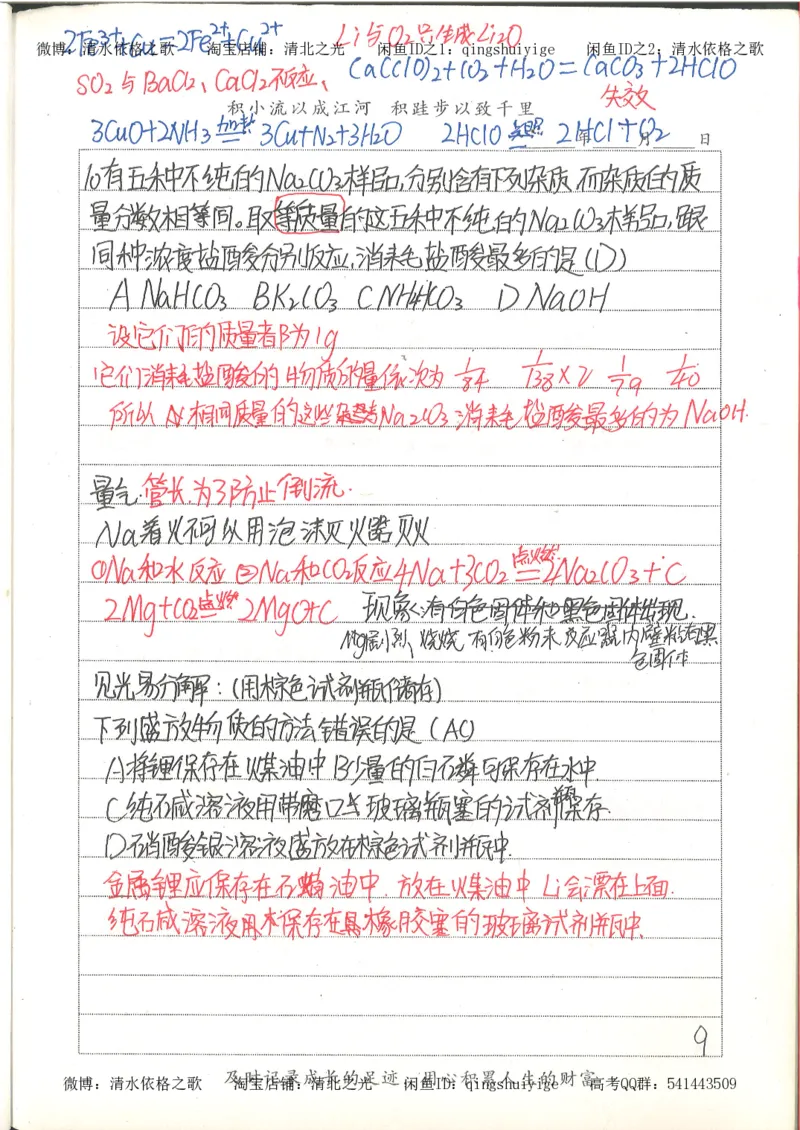 2Fe³⁺+Cu=2Fe²⁺+Cu²⁺ Li与O2只生成Li2O
微博：清水依格之歌 淘宝店铺：清北之光 闲鱼ID之1：qingshuiyige 闲鱼ID之2：清水依格之歌
SO2与BaCl2、CaCl2不反应、 Ca(ClO)2+CO2+H2O=CaCO3+2HClO
积小流以成江河 积跬步以致千里 失效
3CuO+2NH3 加热= 3Cu+N2+3H2O 2HClO 光照= 2HCl+O2 年 月 日
10有五种不纯的Na2CO3样品,分别含有下列杂质,而杂质的质
量分数相等同。取等质量的这五种不纯的Na2CO3样品,跟
同种浓度盐酸分别反应,消耗盐酸最多的是(D)
A NaHCO3 B K2CO3 C NH4HCO3 D NaOH
设它们的质量都为1g
它们消耗盐酸的物质的量依次为 1/84 1/138×2 1/79 1/40
所以 相同质量的这些 Na2CO3消耗盐酸最多的为NaOH.
量气.管长.为了防止倒流.
Na着火不可以用泡沫灭火器灭火
①Na和水反应 ②Na和CO2反应4Na+3CO2 点燃= 2Na2CO3+C
2Mg+CO2 点燃= 2MgO+C 现象:有白色固体和黑色固体出现.
Mg剧烈,燃烧 有白色粉末 反应器内壁粘有黑
色固体
见光易分解:(用棕色试剂瓶储存)
下列盛放物质的方法错误的是(AC)
A将锂保存在煤油中 B少量的白磷可保存在水中
C纯石咸溶液用带磨口玻璃瓶塞的试剂瓶保存.
D石肖酸银溶液盛放在棕色试剂瓶中.
金属锂应保存在石蜡油中.放在煤油中Li会漂在上面.
纯石咸溶液用木保存在具橡胶塞的玻璃试剂瓶中.
9
及时记录成长的足迹 用心积累人生的财富
微博：清水依格之歌 淘宝店铺：清北之光 闲鱼ID：qingshuiyige 高考QQ群：541443509